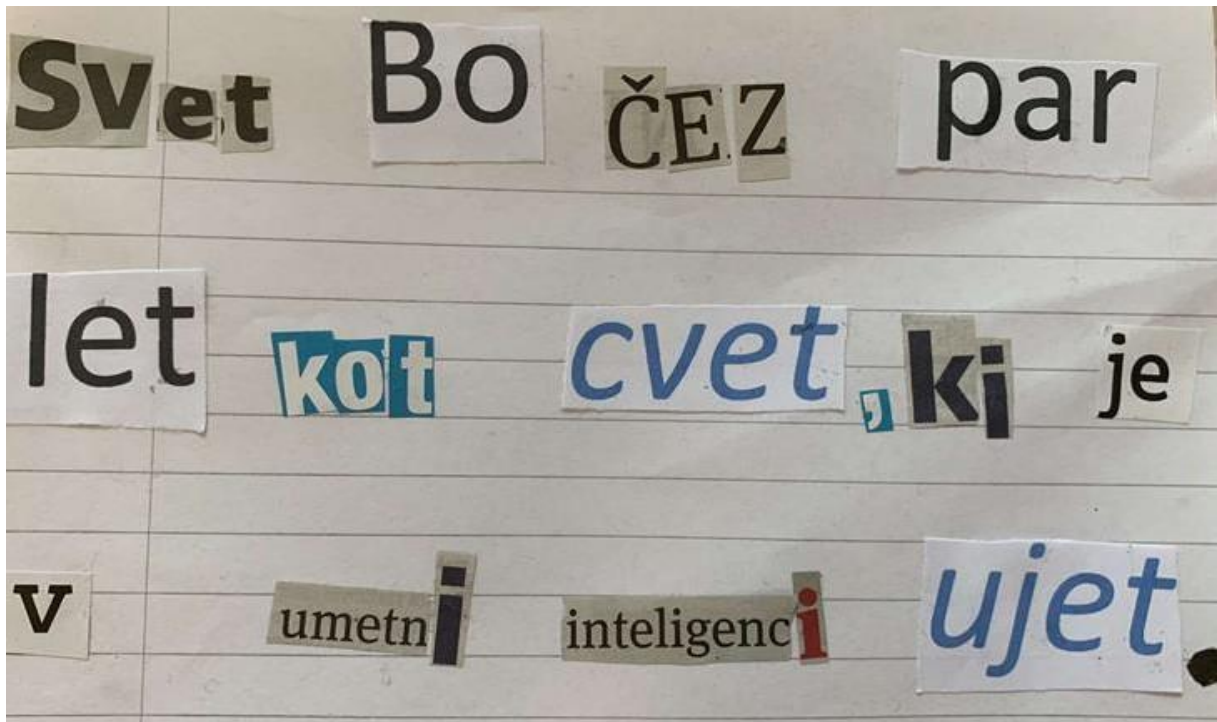 Svet Bo ČEZ par
let kot cvet, ki je
v umetni inteligenci ujet.